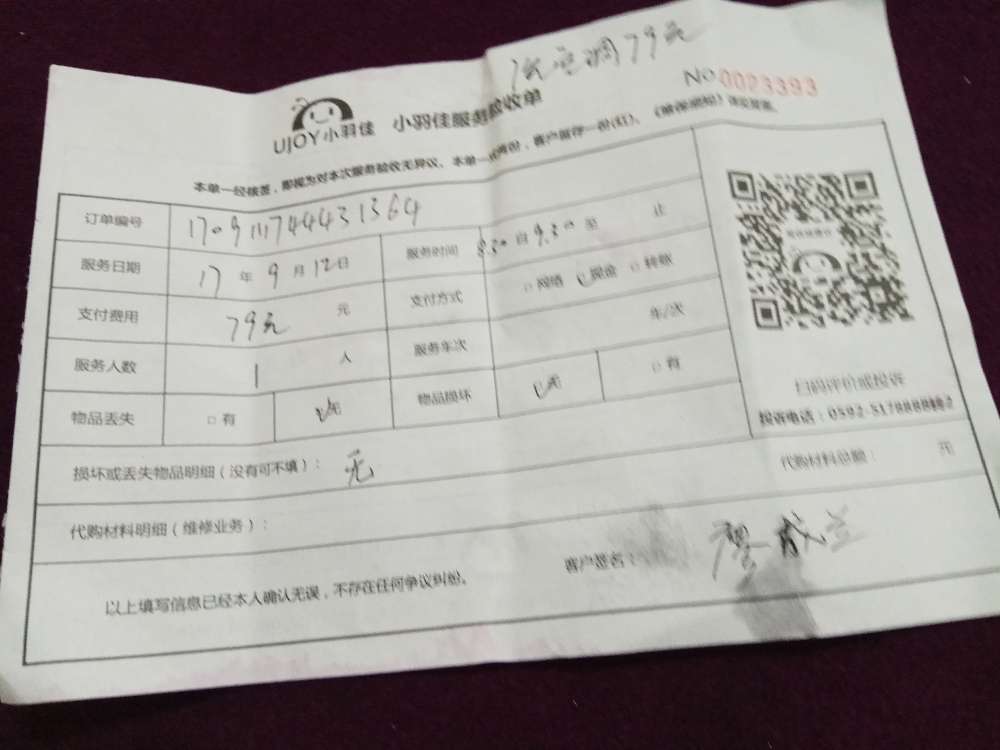 洗空调79元
No 0023393
UJOY小羽佳 小羽佳服务验收单
本单一经核签，即视为对本次服务验收无异议。本单一式两份，客户留存一份(红)、
订单编号
服务日期 17年9月12日 服务时间 8:30自9:30至 止
支付费用 79元 元 支付方式 □网络 ☑现金 □转账
服务人数 1 人 服务车次 车/次
物品丢失 □有 ☑无 物品损坏 ☑无 □有
扫码评价或投诉
投诉电话：0592-5178888
损坏或丢失物品明细（没有可不填）： 无
代购材料明细（维修业务）： 代购材料总额： 元
以上填写信息已经本人确认无误，不存在任何争议纠纷。 客户签名：